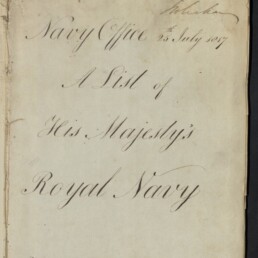 Navy Office 25th July 1807
A List of
His Majesty's
Royal Navy